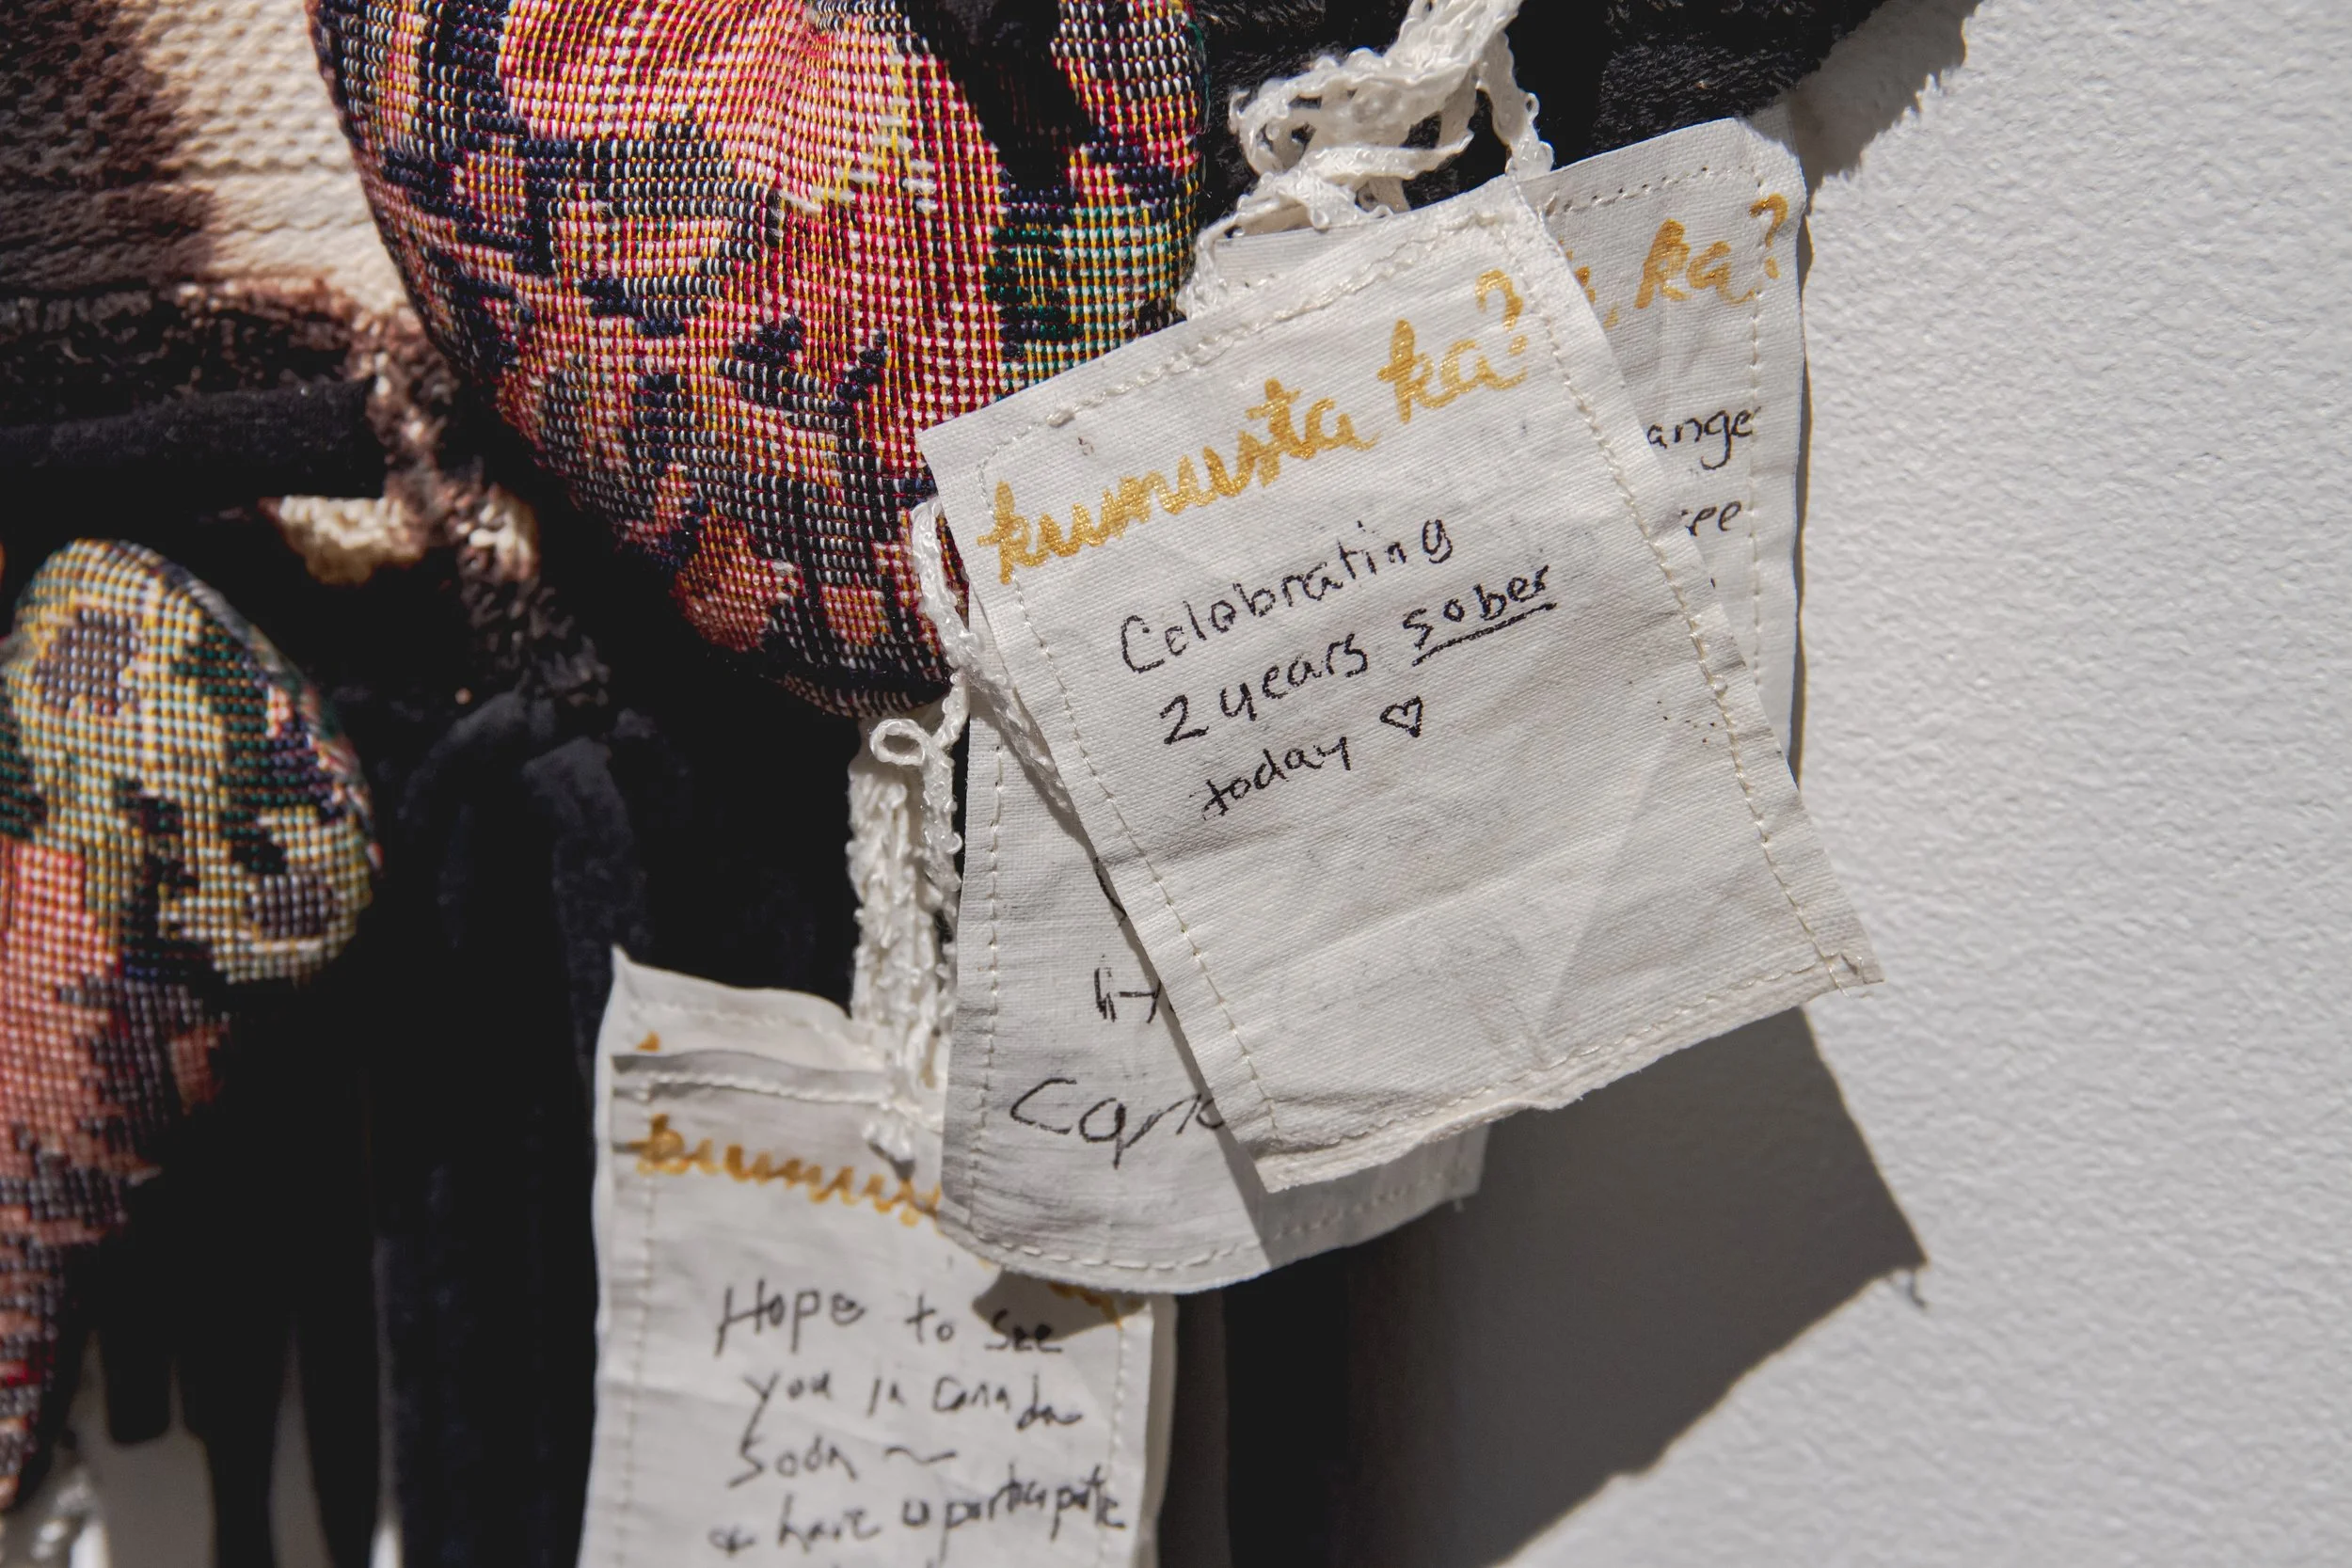 kumusta ka?
Celebrating
2 years sober
today ♡
ka?
ange
ee
Hope to see
you in Canada
soon ~
& have u participate